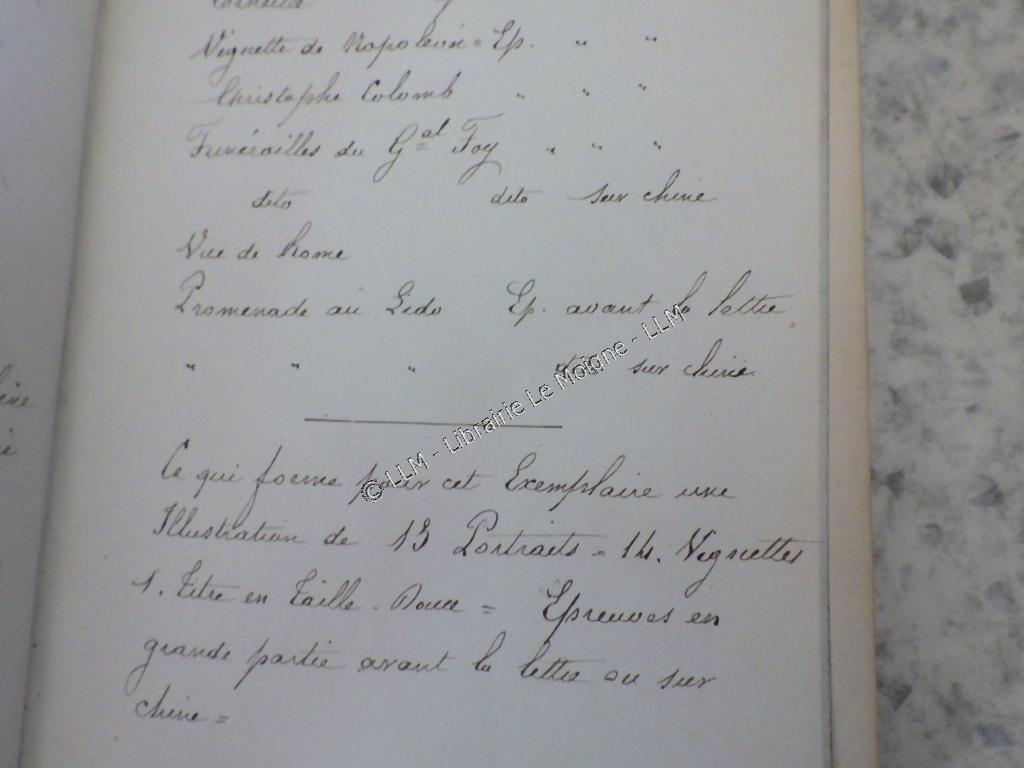 Vignette de Napoléon = Ep. " "
Christophe Colomb " " "
Funérailles du Gal Foy " " "
dito dito sur chine
Vue de Rome
Promenade au Lido Ep. avant la lettre
" " " dito sur chine
© LLM - Librairie Le Moigne - LLM
Ce qui forme pour cet Exemplaire une
Illustration de 13 Portraits = 14. Vignettes
1. Titre en Taille-Douce = Epreuves en
grande partie avant la lettre ou sur
chine =